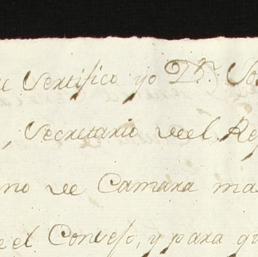 Certifico yo Dn.
, Secretario del Re
no de Camara ma
el Consejo, y para q